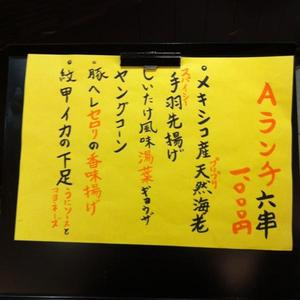 Aランチ 六串
一、〇〇〇円
・メキシコ産 プリプリ 天然海老
スパイシー
手羽先揚げ
・しいたけ風味 湯葉ギョウザ
・ヤングコーン
・豚ヘレ セロリの香味揚げ
・紋甲イカの下足 うにソースとマヨネーズ